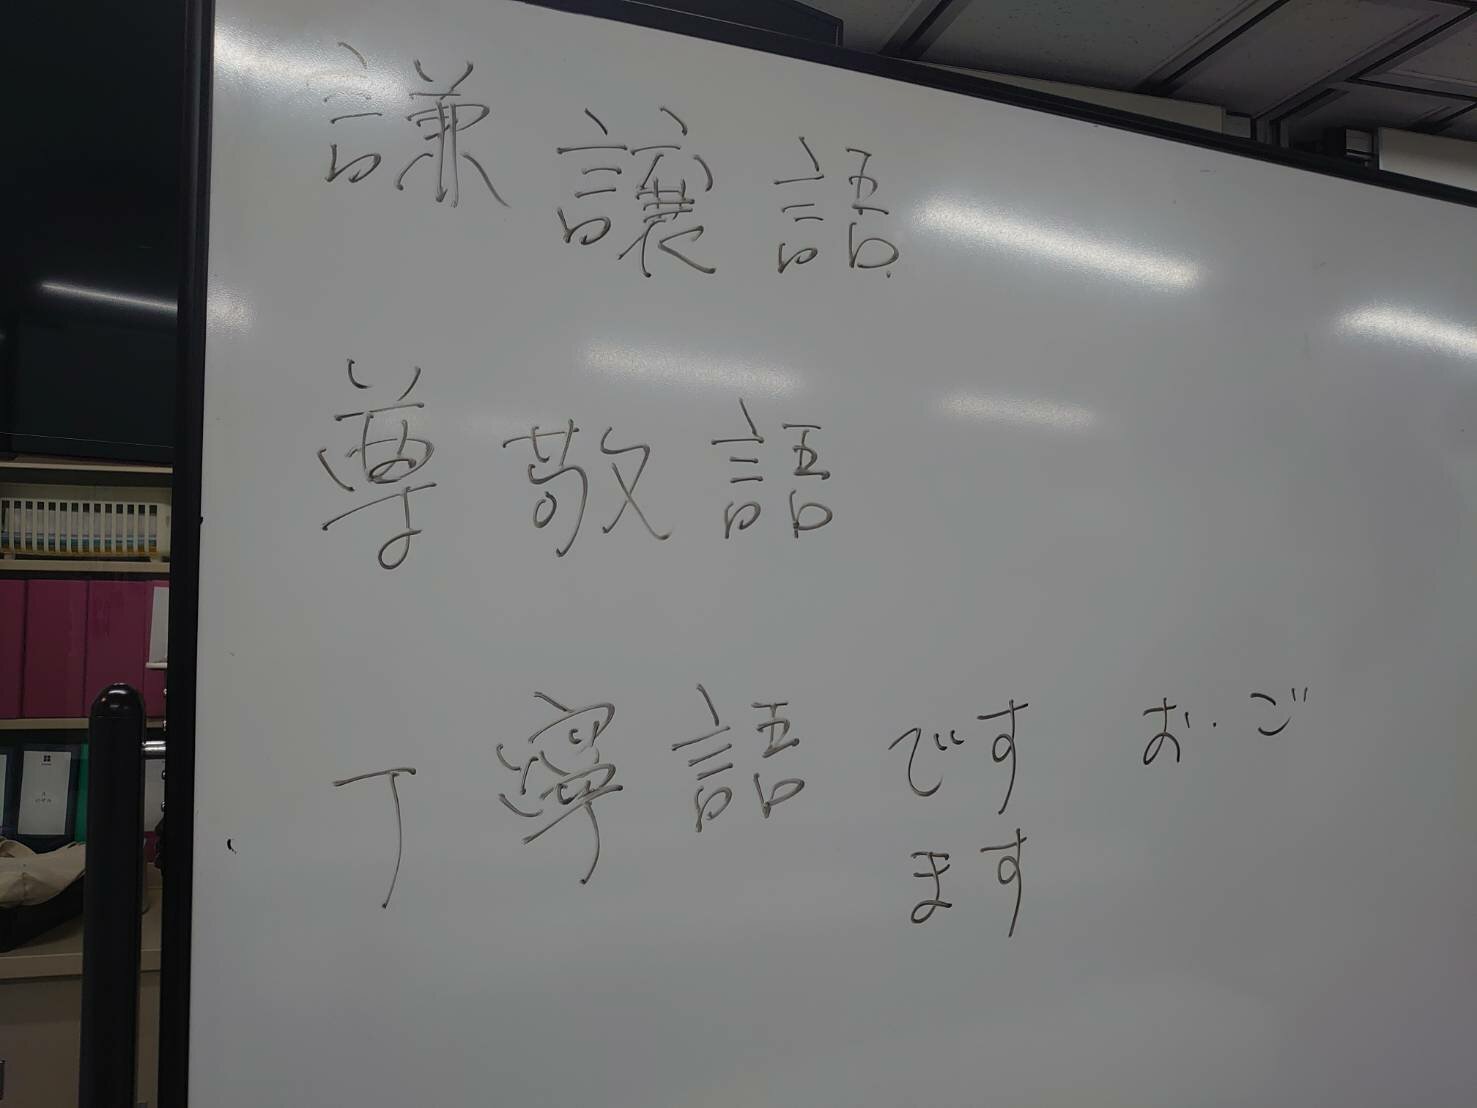 謙譲語
尊敬語
丁寧語 です お・ご
ます